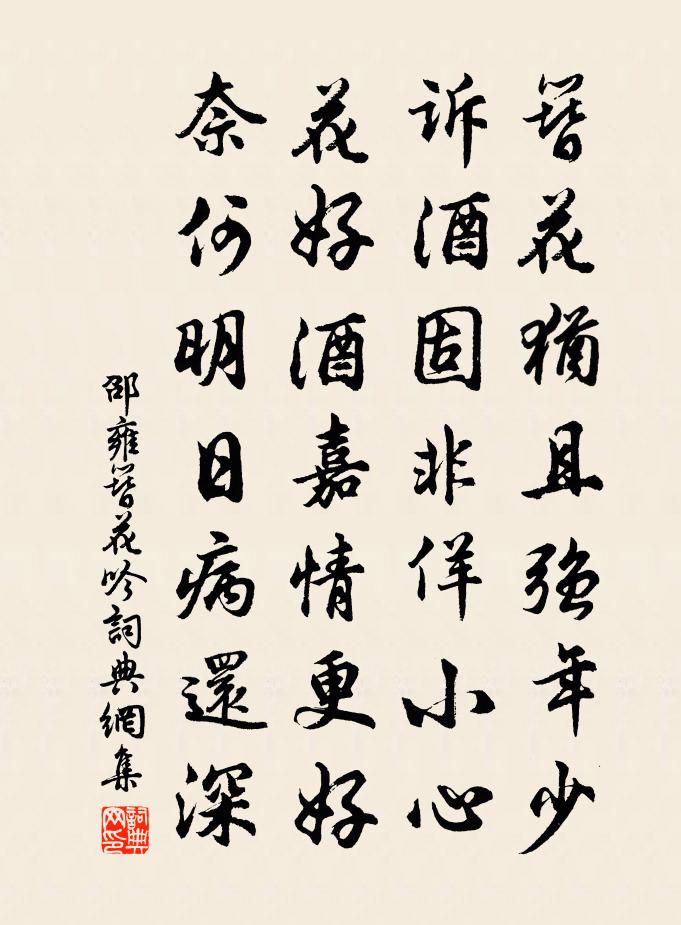 簪花猶且強年少
訴酒固非佯小心
花好酒嘉情更好
奈何明日病還深
邵雍簪花吟詞典網集
詞典網印